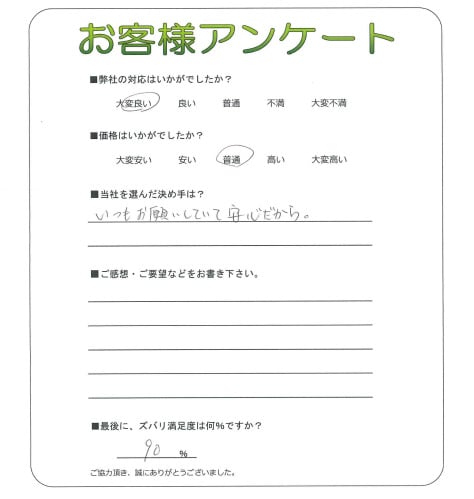 お客様アンケート
■弊社の対応はいかがでしたか？
大変良い 良い 普通 不満 大変不満
■価格はいかがでしたか？
大変安い 安い 普通 高い 大変高い
■当社を選んだ決め手は？
いつもお願いしていて安心だから。
■ご感想・ご要望などをお書き下さい。
■最後に、ズバリ満足度は何%ですか？
90 %
ご協力頂き、誠にありがとうございました。